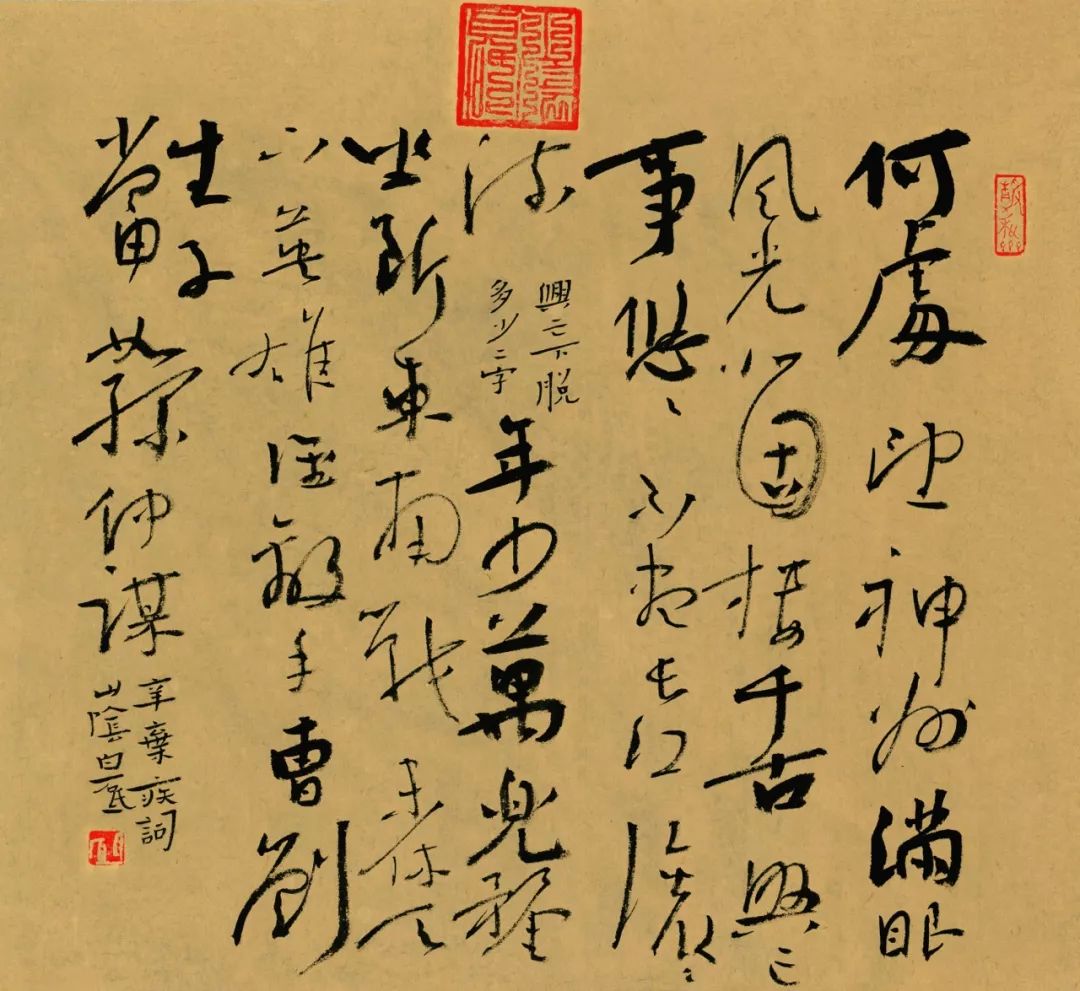 何處望神州滿眼
風光北固樓千古興亡
事悠〻不盡長江滾〻
流
興亡下脫
多少二字
年少萬兜鍪
坐斷東南戰未休天
下英雄誰敵手曹劉
生子
當如孫仲謀
辛棄疾詞
山陰白砥